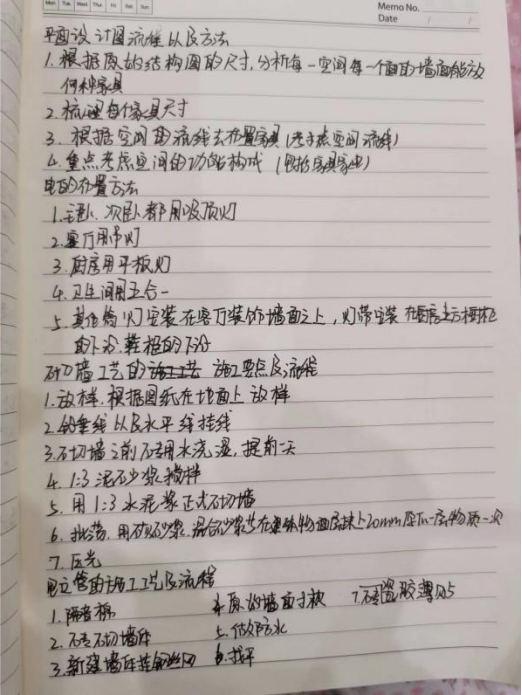 Mon Tue Wed Thu Fri Sat Sun
Memo No.
Date / /
平面设计图流程以及方法
1.根据原始结构图的尺寸,分析每一空间每一个面的墙面能放
何种家具
2.梳理每个家具尺寸
3.根据空间的流线去布置家具(考虑空间流线)
4.重点考虑空间的功能构成(包括家具家电)
电的布置方法
1.主卧、次卧都用吸顶灯
2.客厅用吊灯
3.厨房用平板灯
4.卫生间用五合一
5.其他灯安装在客厅装饰墙面之上,灯带安装在厨房上方橱柜
的下沿,鞋柜的下沿
砌墙工艺的施工要点及流程
1.放样,根据图纸在地面上放样
2.铅垂线以及水平线挂线
3.砌墙之前砖用水浇湿,提前一天
4. 1:3泥沙浆搅拌
5. 用1:3水泥浆正式砌墙
6. 批荡,用砂浆,混合砂浆等在墙体物面层抹上20mm
7.压光
包立管的施工工艺及流程
1.隔音棉 4.原始墙面 7.瓷砖胶薄贴
2.砖砌墙体 5.做防水
3.新建墙体挂钢丝网 6.找平